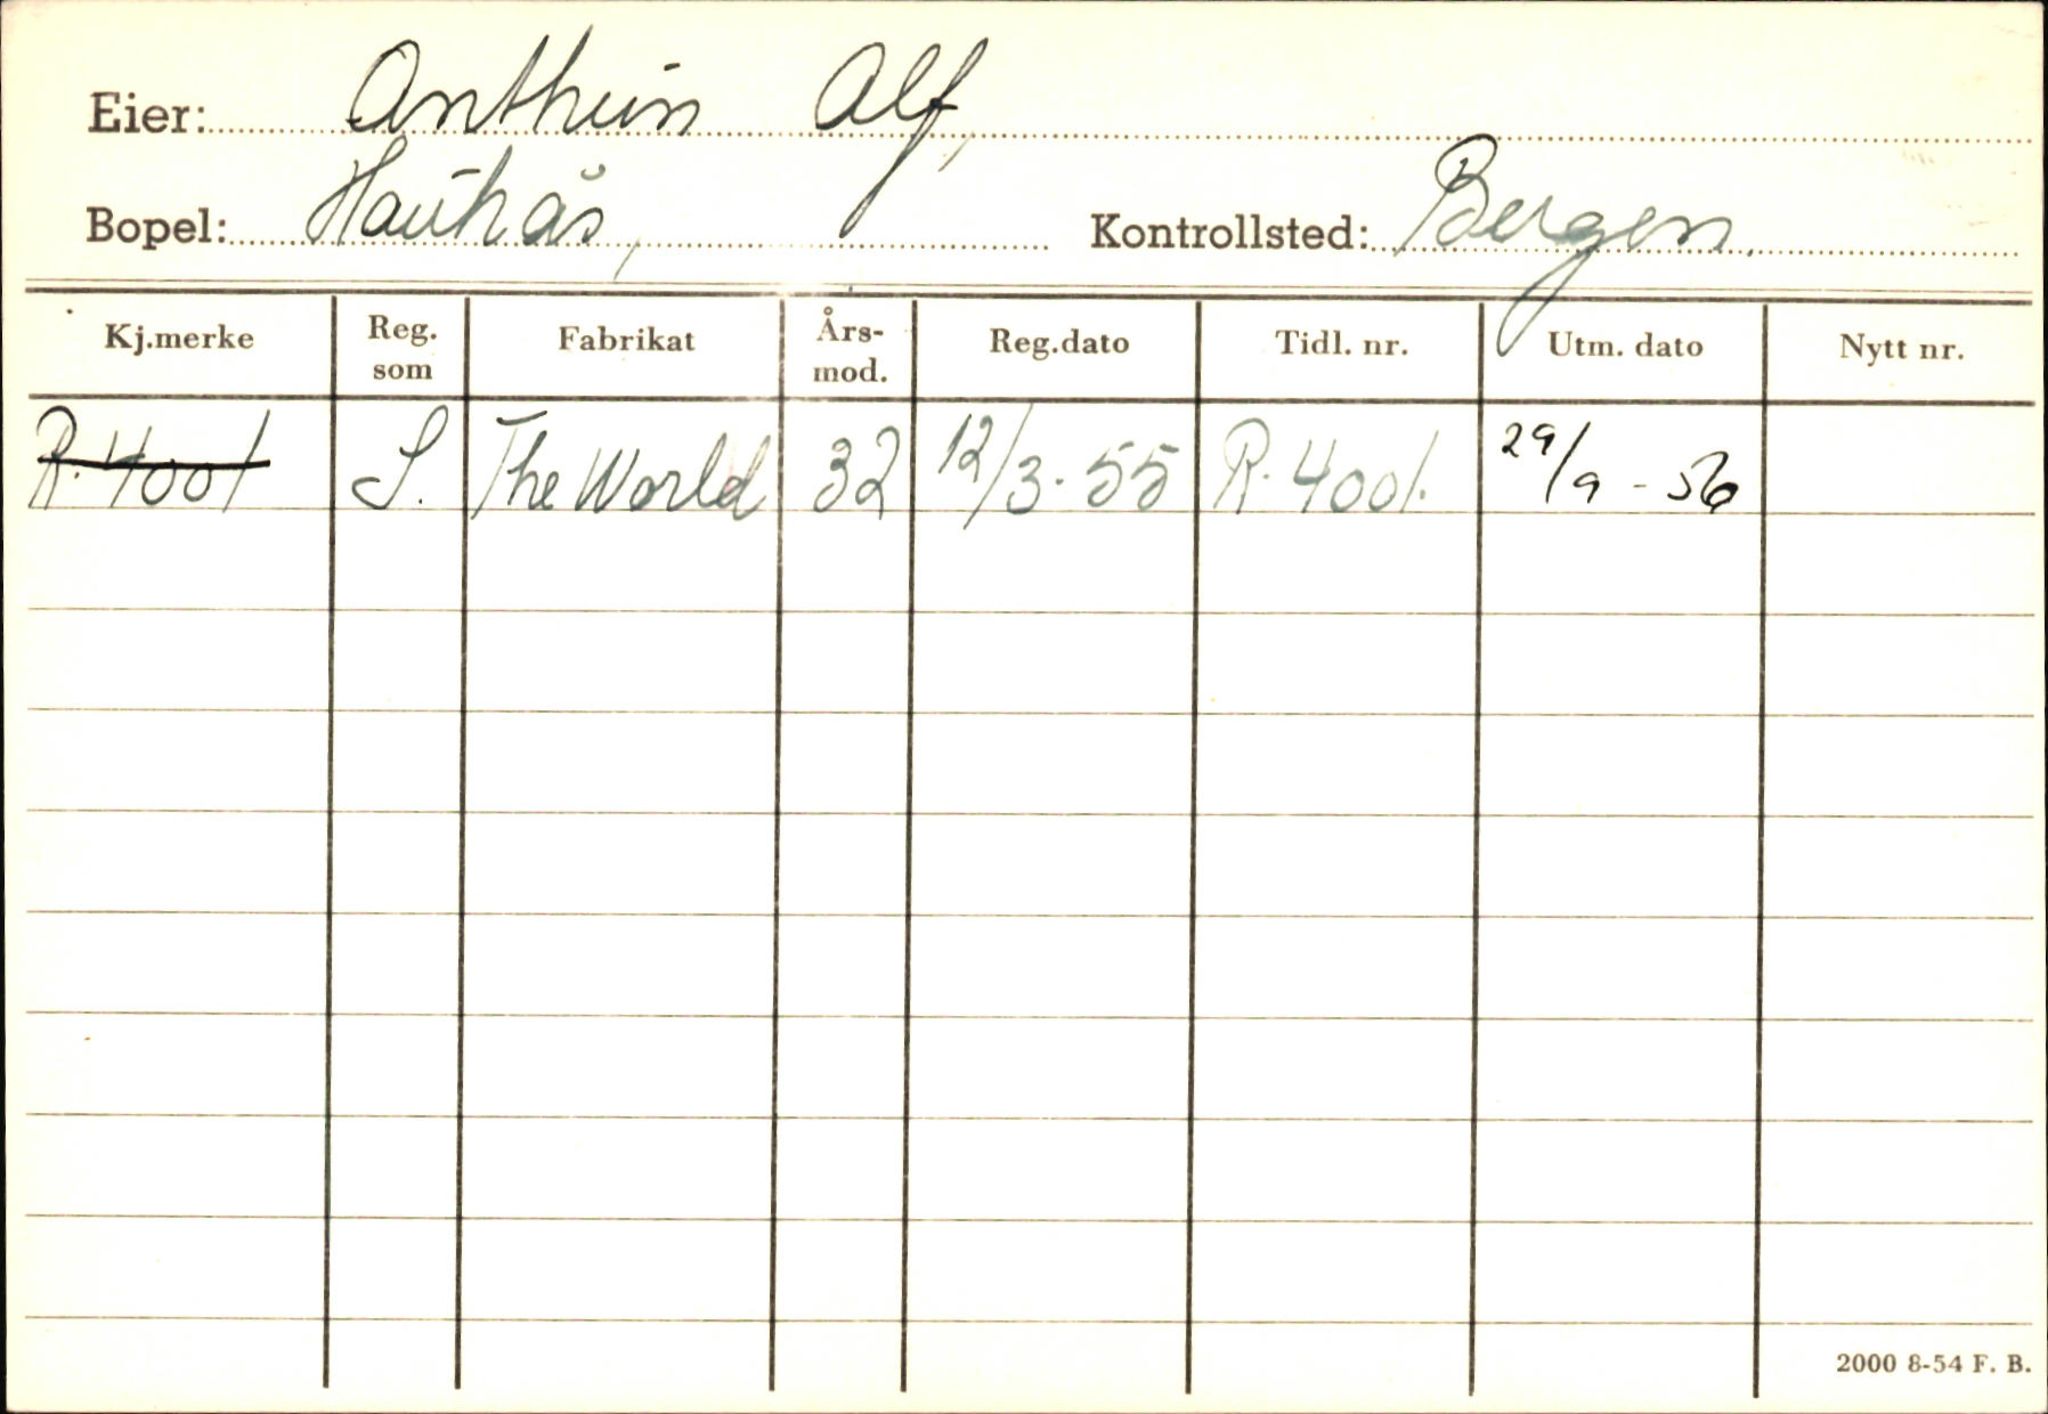 Eier: Anthun Alf,
Bopel: Haukås, Kontrollsted: Bergen.
Kj.merke Reg. som Fabrikat Års-mod. Reg.dato Tidl. nr. Utm. dato Nytt nr.
R.4001 S. The World 32 12/3-55 R.4001. 29/9-56
2000 8-54 F. B.